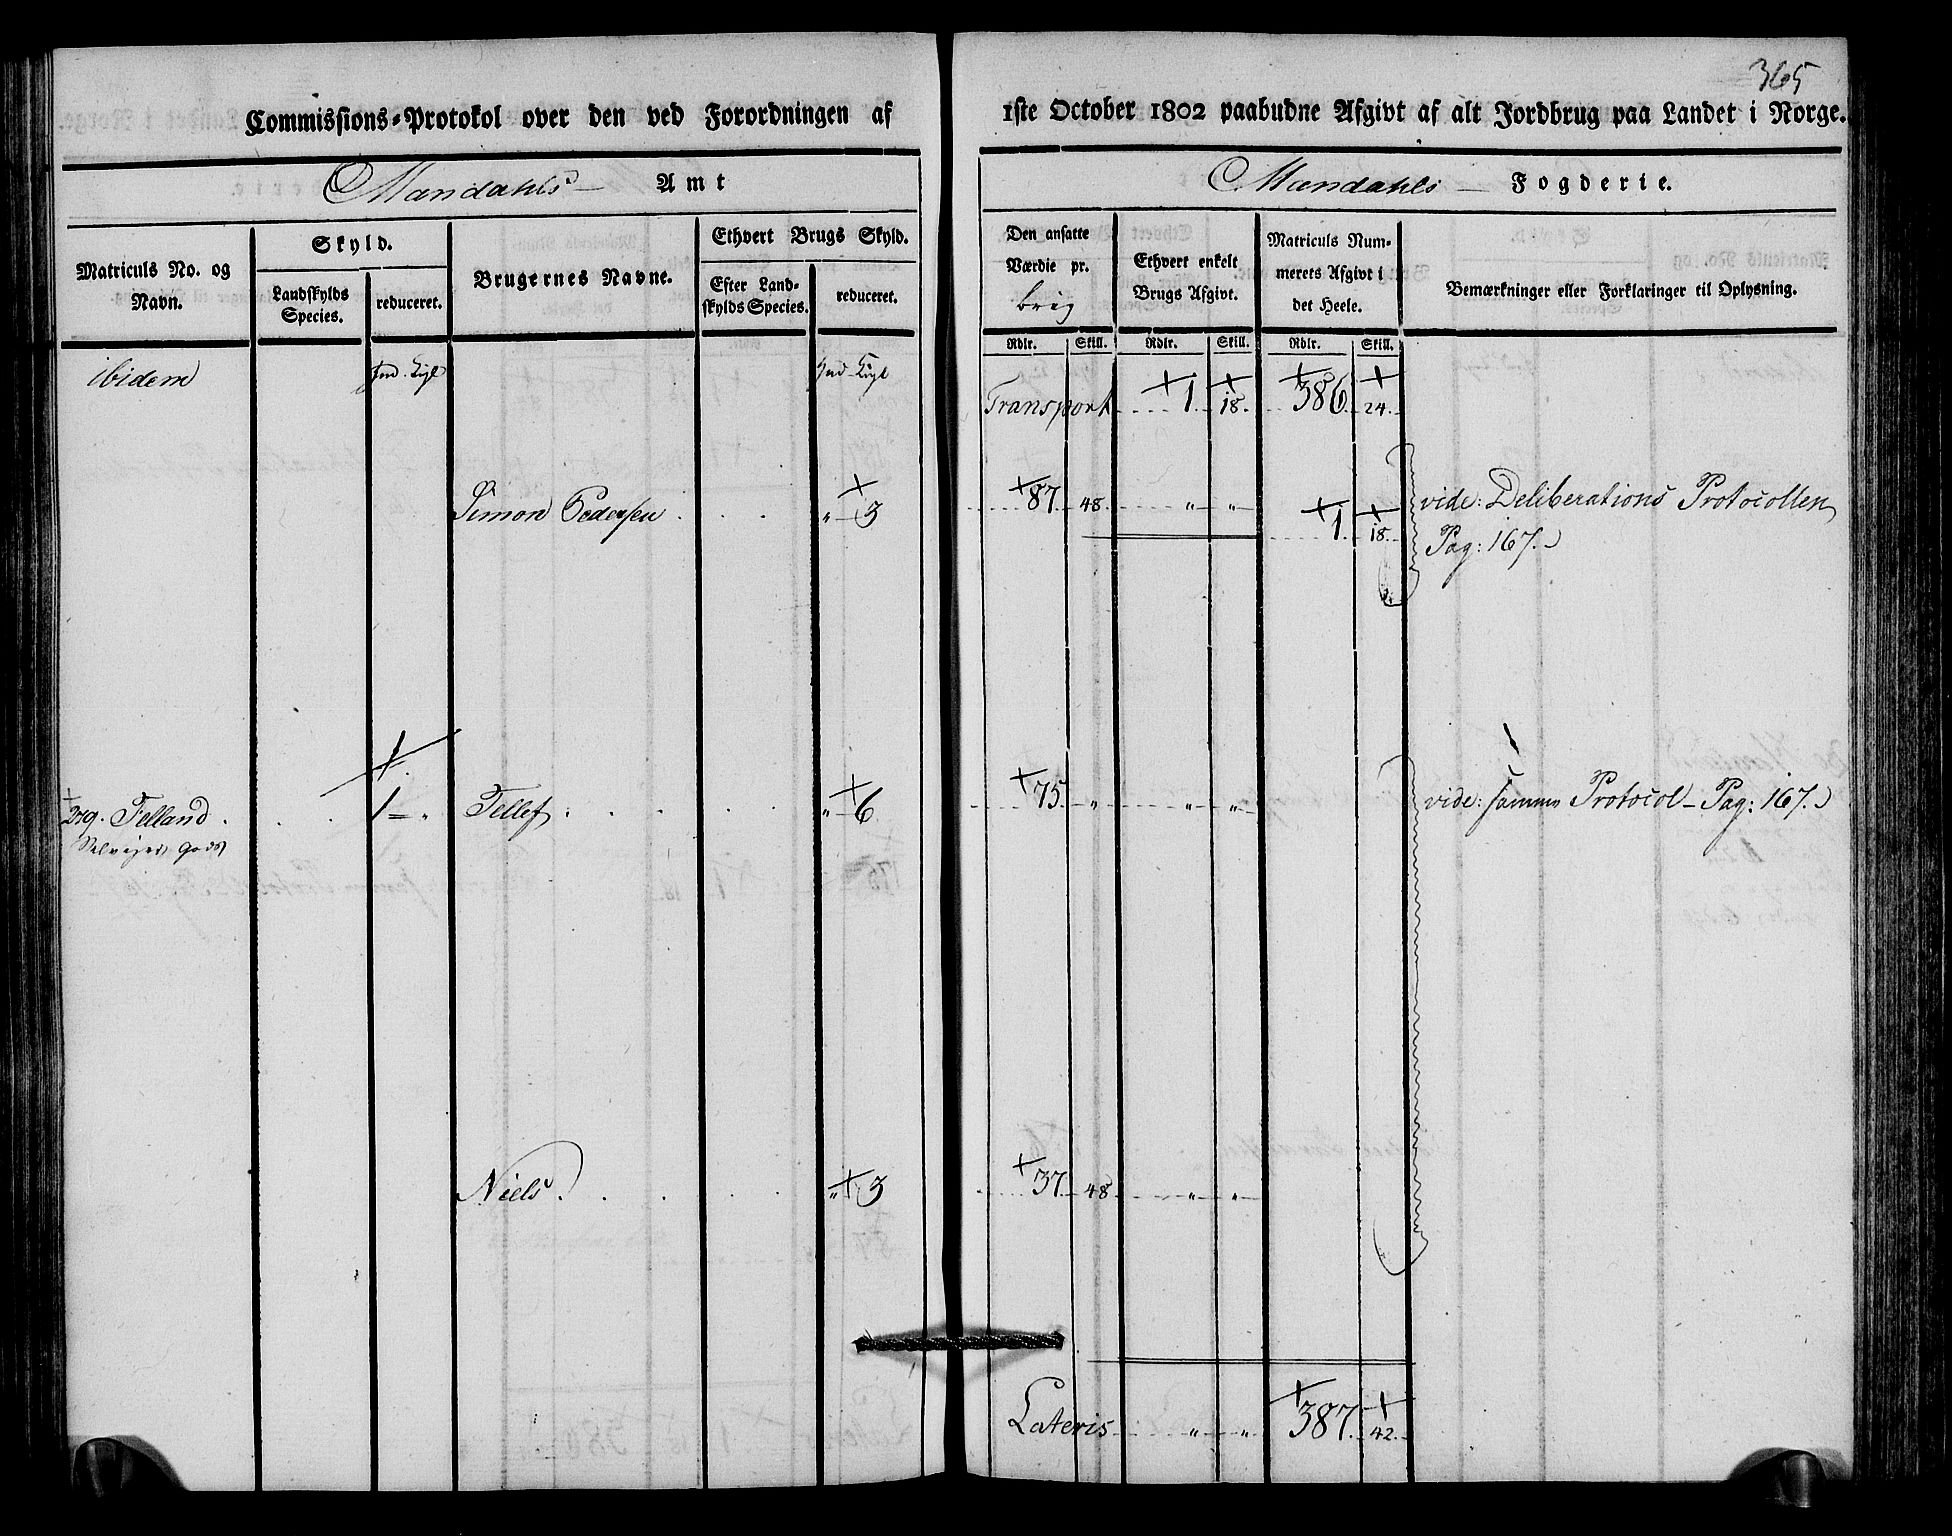 365
Commissions-Protokol over den ved Forordningen af 1ste October 1802 paabudne Afgivt af alt Jordbrug paa Landet i Norge.
Mandahls Amt
Mandahls Fogderie.
Matriculs No. og Navn.
Skyld.
Landskylds Species.
reduceret.
Brugernes Navne.
Ethvert Brugs Skyld.
Efter Landskylds Species.
reduceret.
Den ansatte Værdie pr. brug
Ethvert enkelt Brugs Afgivt.
Matriculs Nummerets Afgivt i det Heele.
Bemærkninger eller Forklaringer til Oplysning.
Rdlr. Skill. Rdlr. Skill. Rdlr. Skill.
ibidem
Transport 1 18. 386. 24.
Simon Pedersen . . . „ 3 87 48 „ „ 1. 18. vide: Deliberations Protocollen
Pag: 167.
Telland . . . 1 „ Tellef . . . . . „ 6 75 „ „ „ vide: samme Protocol - Pag: 167.
Selvejer Gods
Niels . . . . „ 3 37 48 „ „
Lateris „ „ 387. 42.